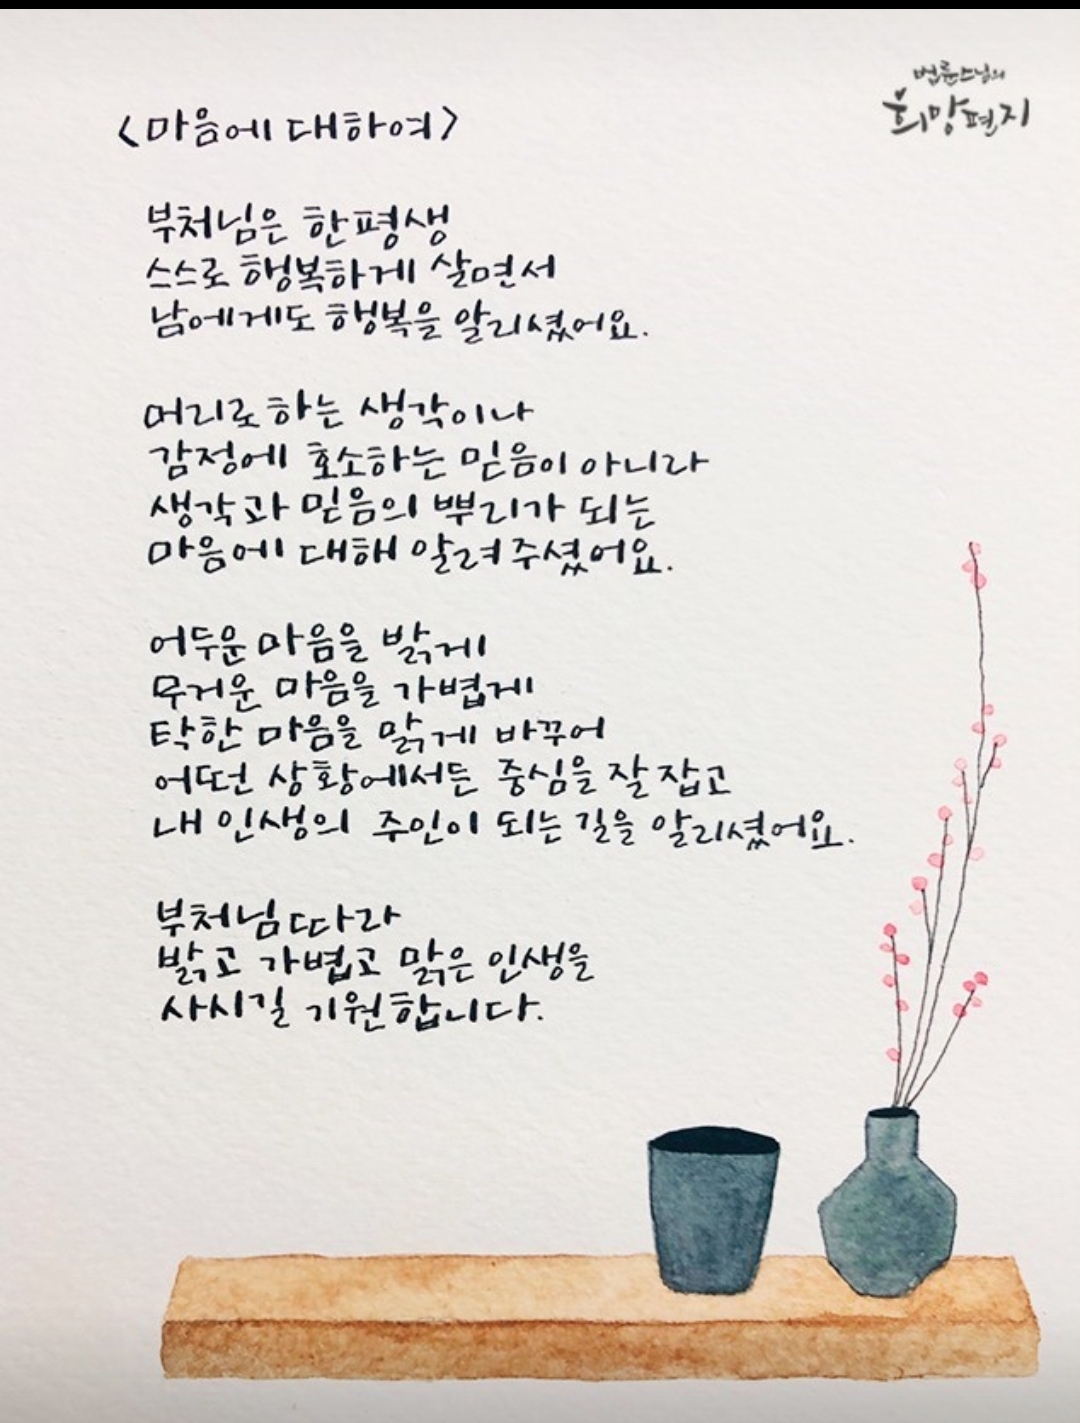 법륜스님의
희망편지
<마음에 대하여>
부처님은 한평생
스스로 행복하게 살면서
남에게도 행복을 알리셨어요.
머리로 하는 생각이나
감정에 호소하는 믿음이 아니라
생각과 믿음의 뿌리가 되는
마음에 대해 알려주셨어요.
어두운 마음을 밝게
무거운 마음을 가볍게
탁한 마음을 맑게 바꾸어
어떠떤 상황에서든 중심을 잘 잡고
내 인생의 주인이 되는 길을 알리셨어요.
부처님 따라
밝고 가볍고 맑은 인생을
사시길 기원합니다.